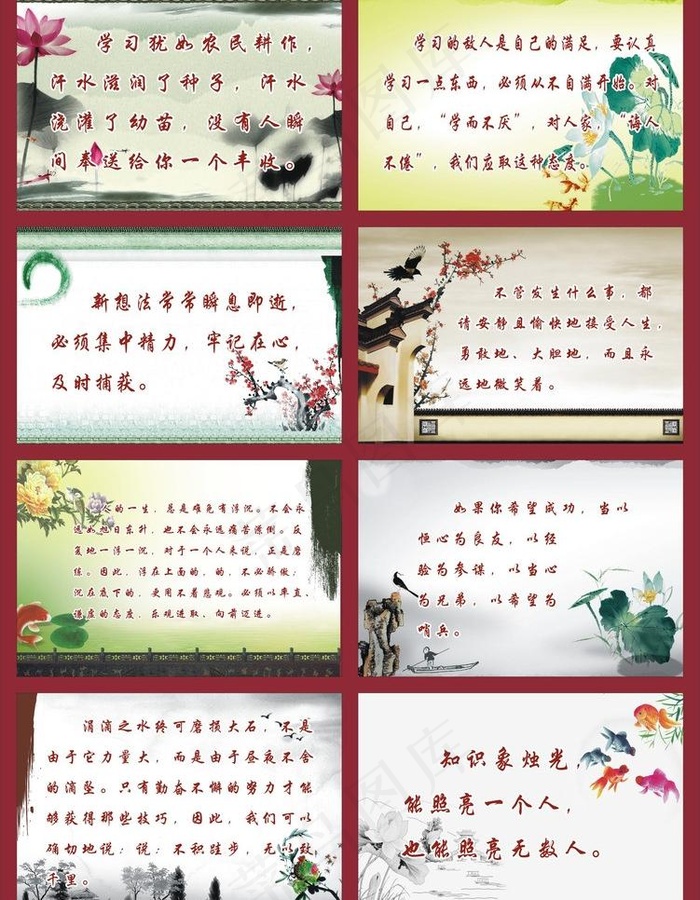 学习犹如农民耕作，
汗水滋润了种子，汗水
浇灌了幼苗，没有人瞬
间奉送给你一个丰收。
学习的敌人是自己的满足，要认真
学习一点东西，必须从不自满开始。对
自己，“学而不厌”，对人家，“诲人
不倦”，我们应取这种态度。
新想法常常瞬息即逝，
必须集中精力，牢记在心，
及时捕获。
不管发生什么事，都
请安静且愉快地接受人生，
勇敢地、大胆地，而且永
远地微笑着。
人的一生，总是难免有浮沉。不会永
远如旭日东升，也不会永远痛苦潦倒。反
复地一浮一沉，对于一个人来说，正是磨
练。因此，浮在上面的，的，不必骄傲；
沉在底下的，更用不着悲观。必须以率直、
谦虚的态度，乐观进取、向前迈进。
如果你希望成功，当以
恒心为良友，以经
验为参谋，以当心
为兄弟，以希望为
哨兵。
涓滴之水终可磨损大石，不是
由于它力量大，而是由于昼夜不舍
的滴坠。只有勤奋不懈的努力才能
够获得那些技巧，因此，我们可以
确切地说：说：不积跬步，无以致
千里。
知识象烛光，
能照亮一个人，
也能照亮无数人。